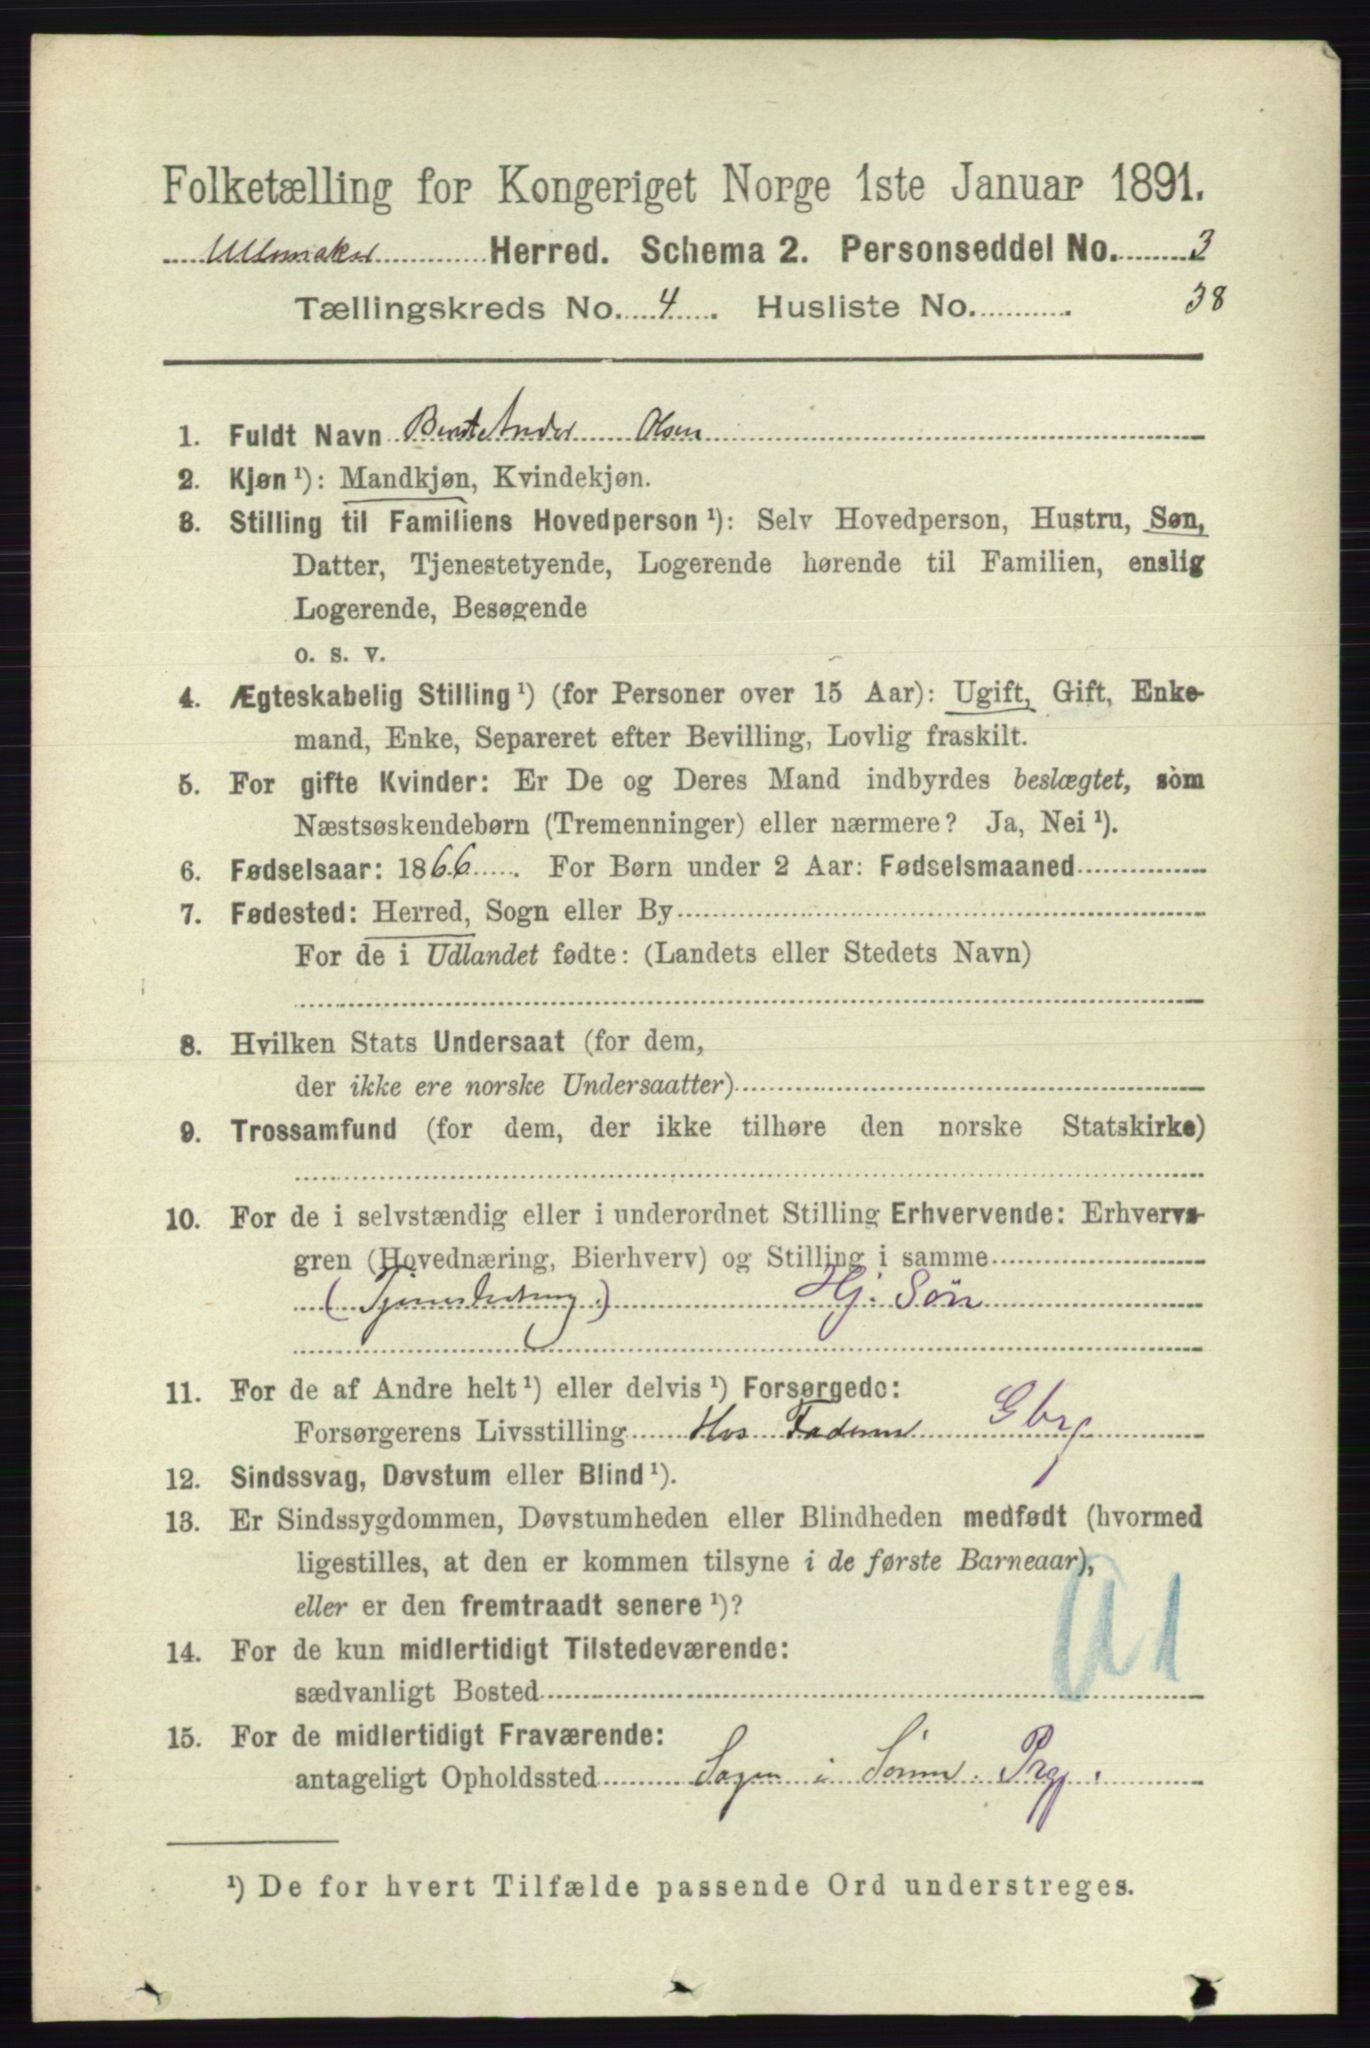 Folketælling for Kongeriget Norge 1ste Januar 1891.
Ullensaker Herred. Schema 2. Personseddel No. 3
Tællingskreds No. 4. Husliste No. 38
1. Fuldt Navn Olsen
2. Kjøn ¹): Mandkjøn, Kvindekjøn.
3. Stilling til Familiens Hovedperson ¹): Selv Hovedperson, Hustru, Søn,
Datter, Tjenestetyende, Logerende hørende til Familien, enslig
Logerende, Besøgende
o. s. v.
4. Ægteskabelig Stilling ¹) (for Personer over 15 Aar): Ugift, Gift, Enke-
mand, Enke, Separeret efter Bevilling, Lovlig fraskilt.
5. For gifte Kvinder: Er De og Deres Mand indbyrdes beslægtet, som
Næstsøskendebørn (Tremenninger) eller nærmere? Ja, Nei ¹).
6. Fødselsaar: 1866. For Børn under 2 Aar: Fødselsmaaned
7. Fødested: Herred, Sogn eller By
For de i Udlandet fødte: (Landets eller Stedets Navn)
8. Hvilken Stats Undersaat (for dem,
der ikke ere norske Undersaatter)
9. Trossamfund (for dem, der ikke tilhøre den norske Statskirke)
10. For de i selvstændig eller i underordnet Stilling Erhvervende: Erhvervs-
gren (Hovednæring, Bierhverv) og Stilling i samme
Hj. Søn
11. For de af Andre helt ¹) eller delvis ¹) Forsørgede:
Forsørgerens Livsstilling Hos Faderen Gbr
12. Sindssvag, Døvstum eller Blind ¹).
13. Er Sindssygdommen, Døvstumheden eller Blindheden medfødt (hvormed
ligestilles, at den er kommen tilsyne i de første Barneaar),
eller er den fremtraadt senere ¹)?
14. For de kun midlertidigt Tilstedeværende:
sædvanligt Bosted
15. For de midlertidigt Fraværende:
antageligt Opholdssted i Prgj.
¹) De for hvert Tilfælde passende Ord understreges.